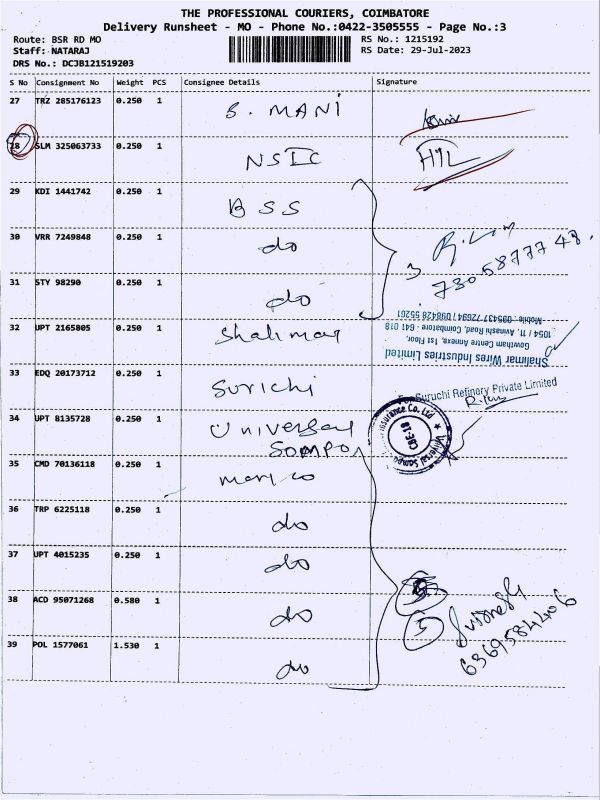 THE PROFESSIONAL COURIERS, COIMBATORE
Delivery Runsheet - MO - Phone No.:0422-3505555 - Page No.:3
Route: BSR RD MO
RS No.: 1215192
Staff: NATARAJ
RS Date: 29-Jul-2023
DRS No.: DCJB121519203
S No Consignment No Weight PCS Consignee Details Signature
27 TRZ 285176123 0.250 1 S. MANI
28 SLM 325063733 0.250 1 NSIC
29 KDI 1441742 0.250 1 BSS
30 VRR 7249848 0.250 1 do
31 STY 98290 0.250 1 do
3
32 UPT 2165805 0.250 1 Shalimar
Shalimar Wires Industries Limited
Gowtham Centre Annexe, 1st Floor,
1054 / 11, Avinashi Road, Coimbatore - 641 018
33 EDQ 20173712 0.250 1 Surichi
Suruchi Refinery Private Limited
34 UPT 8135728 0.250 1 Universal
Sompo
Universal Sompo Insurance Co. Ltd
CBE-18
35 CMD 70136118 0.250 1 marico
36 TRP 6225118 0.250 1 do
37 UPT 4015235 0.250 1 do
38 ACD 95071268 0.580 1 do
39 POL 1577061 1.530 1 do
5
6369584406